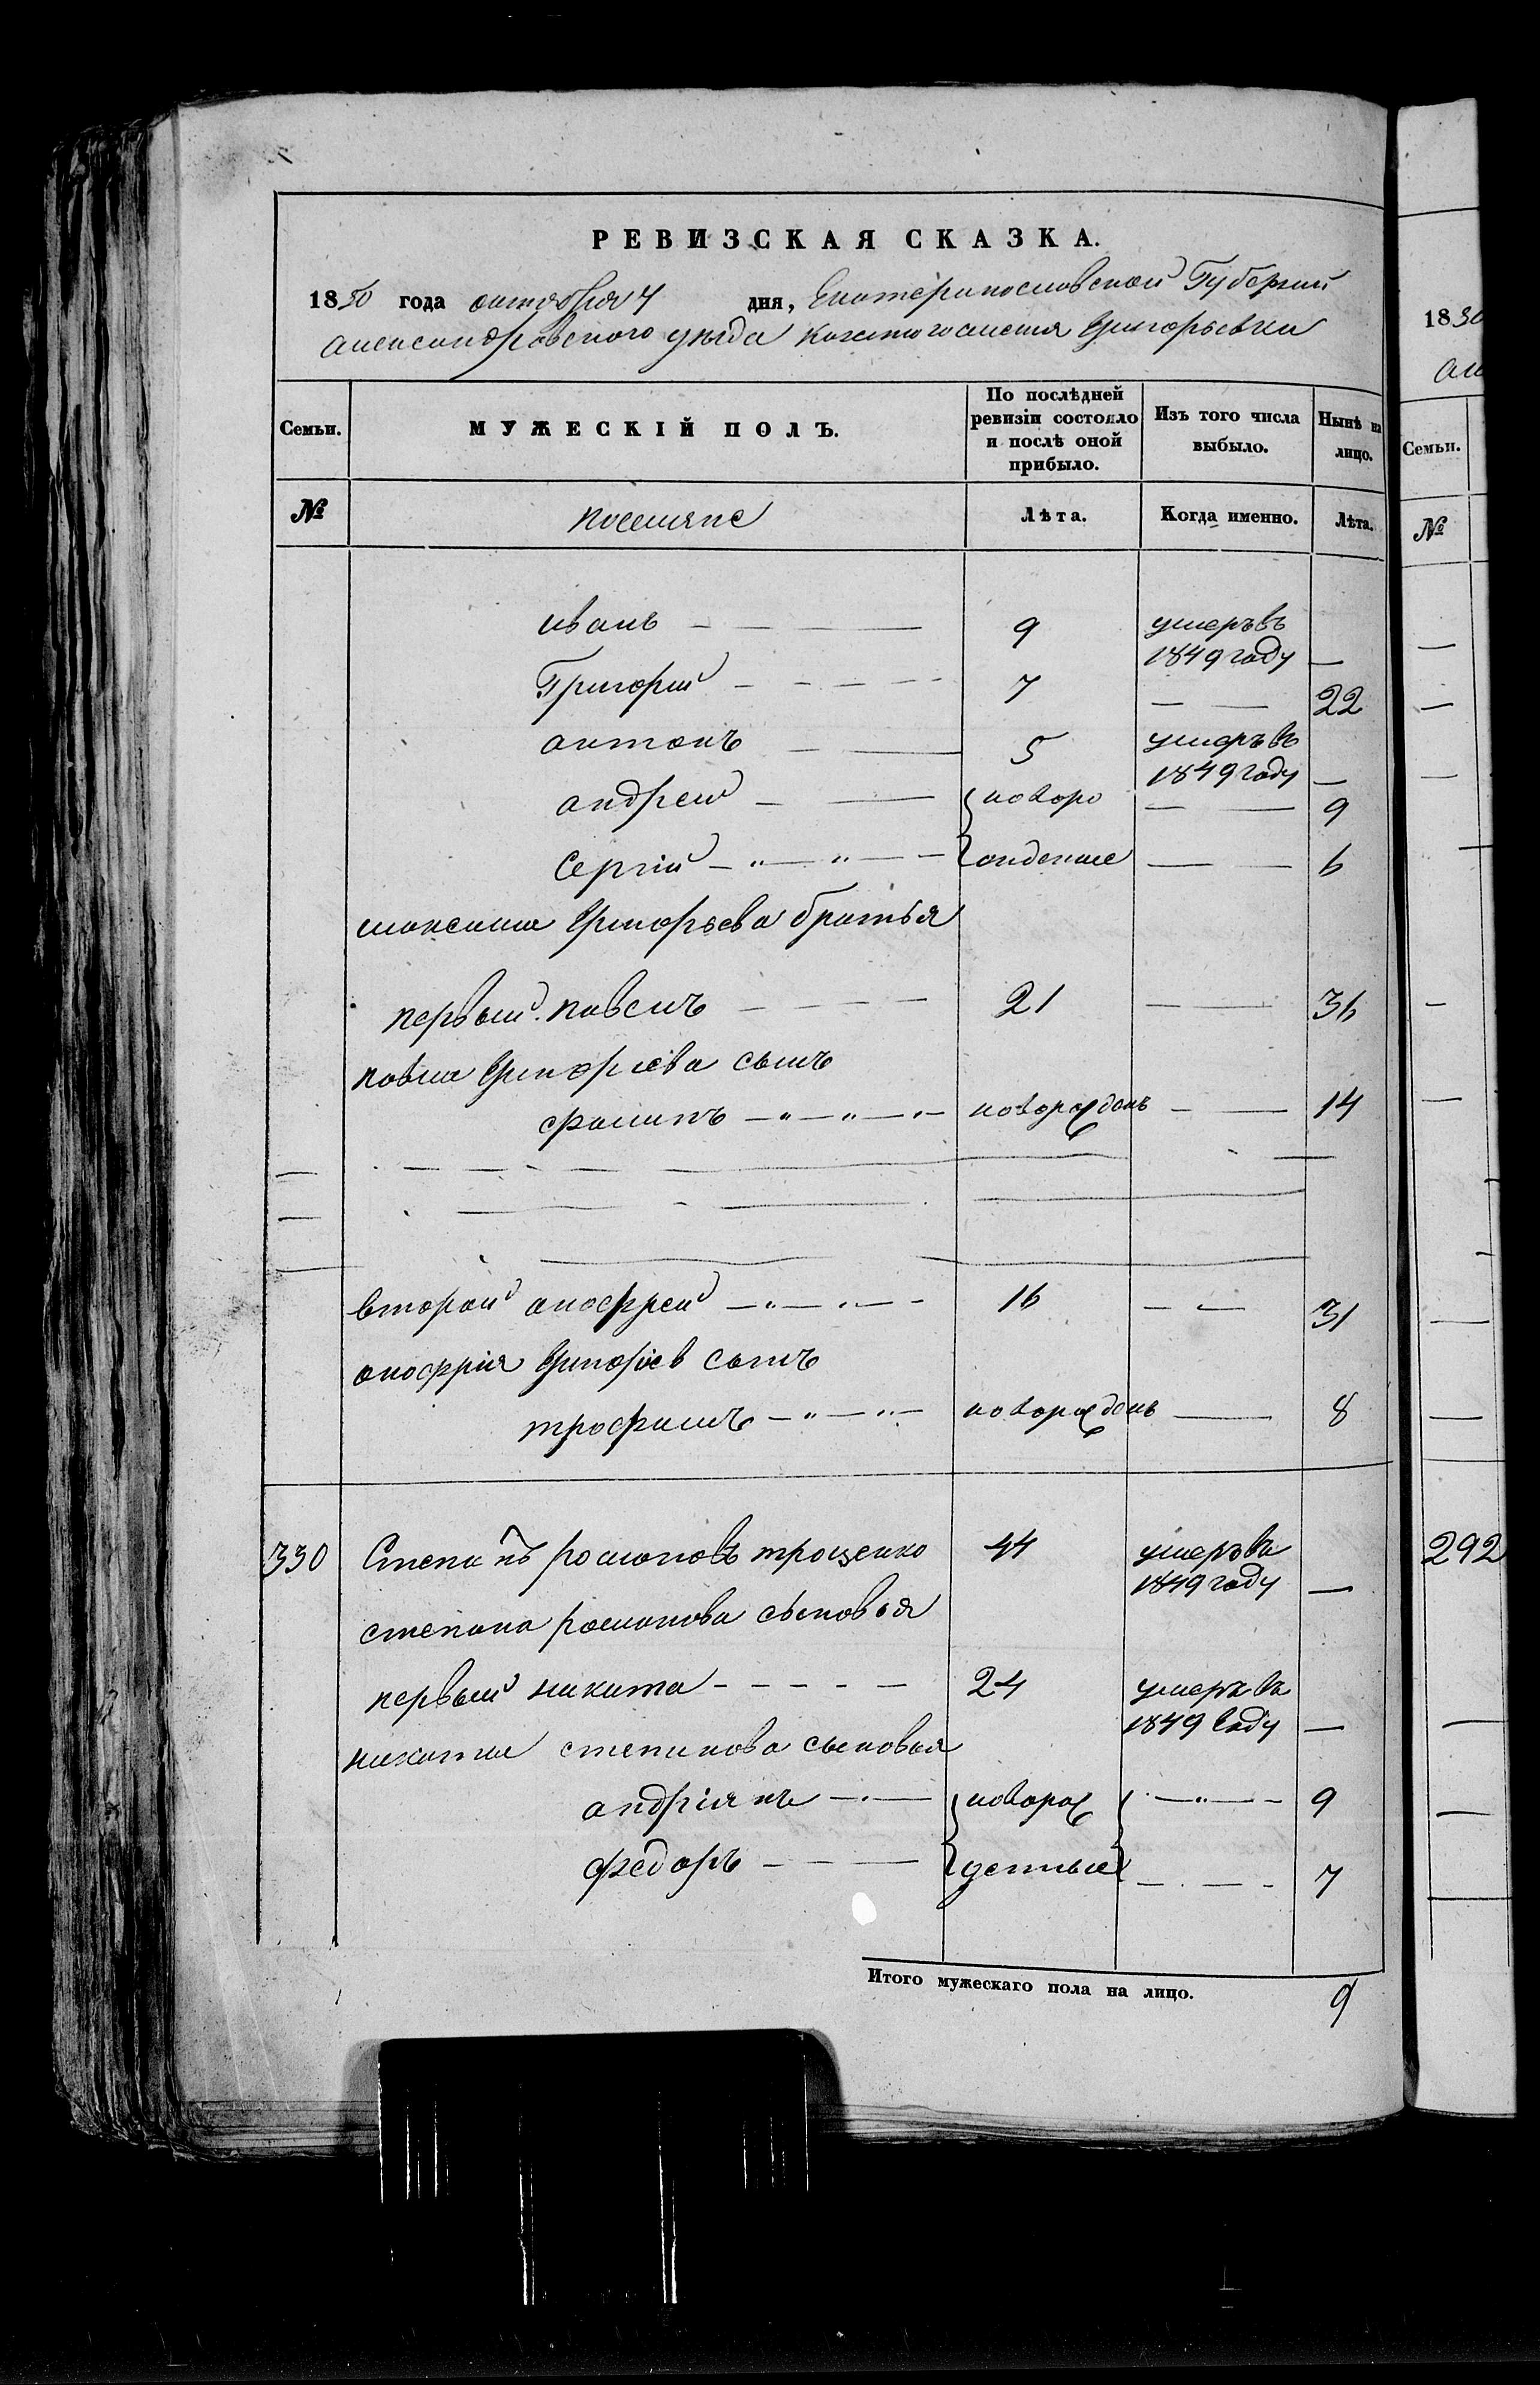 РЕВИЗСКАЯ СКАЗКА.
1850 года октября 4 дня, Екатеринославской Губернии
александровского уезда казенного селения Григорьевки
Семьи. МУЖЕСКІЙ ПОЛЪ. По послѣдней ревизіи состояло и послѣ оной прибыло. Изъ того числа выбыло. Нынѣ на лицо.
№ поселяне Лѣта. Когда именно. Лѣта.
иванъ 9 умеръ въ 1849 году —
Григорий 7 — 22
антонъ 5 умеръ въ 1849 году —
андрей новоро — 9
Сергій жденые — 6
максима Григорьева братья
первый павелъ 21 — 36
павла Григориева сынъ
филипъ новорожденъ — 14
второй анофрей 16 — 31
анофрия Григориев сынъ
трофимъ новорожденъ — 8
330 Степанъ романовъ троценко 44 умеръ въ 1849 году —
степана романова сыновья
первый никита 24 умеръ въ 1849 году —
никиты степанова сыновья
андриянъ новорож 9
федоръ денные 7
Итого мужескаго пола на лицо. 9
1850
Семьи.
№
292